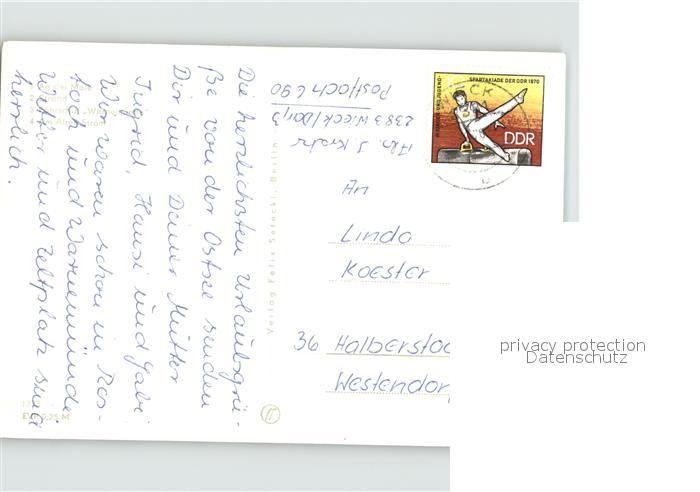 Die herrlichsten Urlaubsgrü-
ße von der Ostsee senden
Dir und Deiner Mutter
Ingrid, Hansi und Gabi
Wir waren schon in Ros-
tock und Warnemünde
Wetter und Zeltplatz sind
herrlich.
Verlag Felix Setecki, Berlin
EVP 0,25 M
Abs. J. Krahr
2383 Wieck/Darß
Postfach 690
SPARTAKIADE DER DDR 1970
DDR
An
Linda
Koester
36 Halberstad
Westendorf
privacy protection
Datenschutz